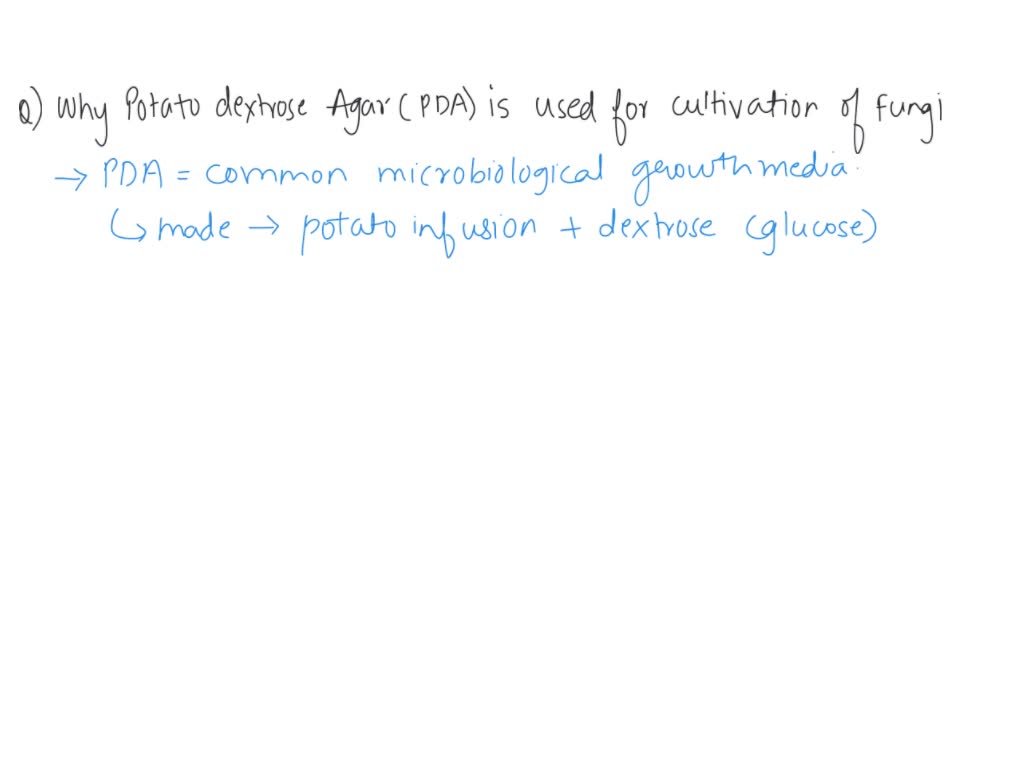 Q) Why Potato dextrose Agar (PDA) is used for cultivation of fungi
→ PDA = common microbiological gerowth media.
↳ made → potato infusion + dextrose (glucose)